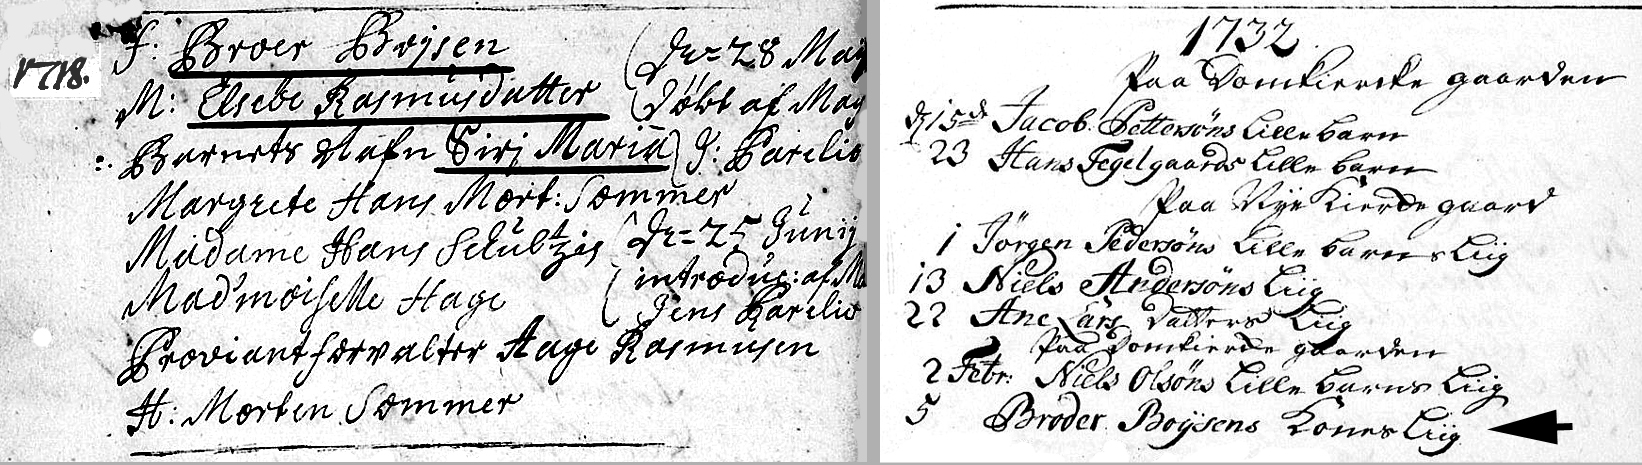 1718.
F: Broer Boÿsen
M: Elsebe Rasmusdatter
Barnets Nafn Siri Maria
Margrete Hans Mort: Sommer
Madame Hans Schultzis
Mad'moiselle Hage
Proviantforvalter Aage Rasmusen
H: Morten Sommer
D= 28 Maij
Døbt af Mag
J: Parelio
D= 25 Junij
introduc: af M
Jens Parelio
1732
Paa Domkiercke gaarden
15de Jacob Pettersøns Lille barn
23 Hans Tegelgaards Lille barn
Paa Nÿe Kierckegaard
1 Jörgen Pedersøns Lille barns Liig
13 Niels Andersøns Liig
22 Ane Lars Datters Liig
Paa Domkiercke gaarden
2 Febr: Niels Olsøns Lille barns Liig
5 Broder Boÿsens Kones Liig